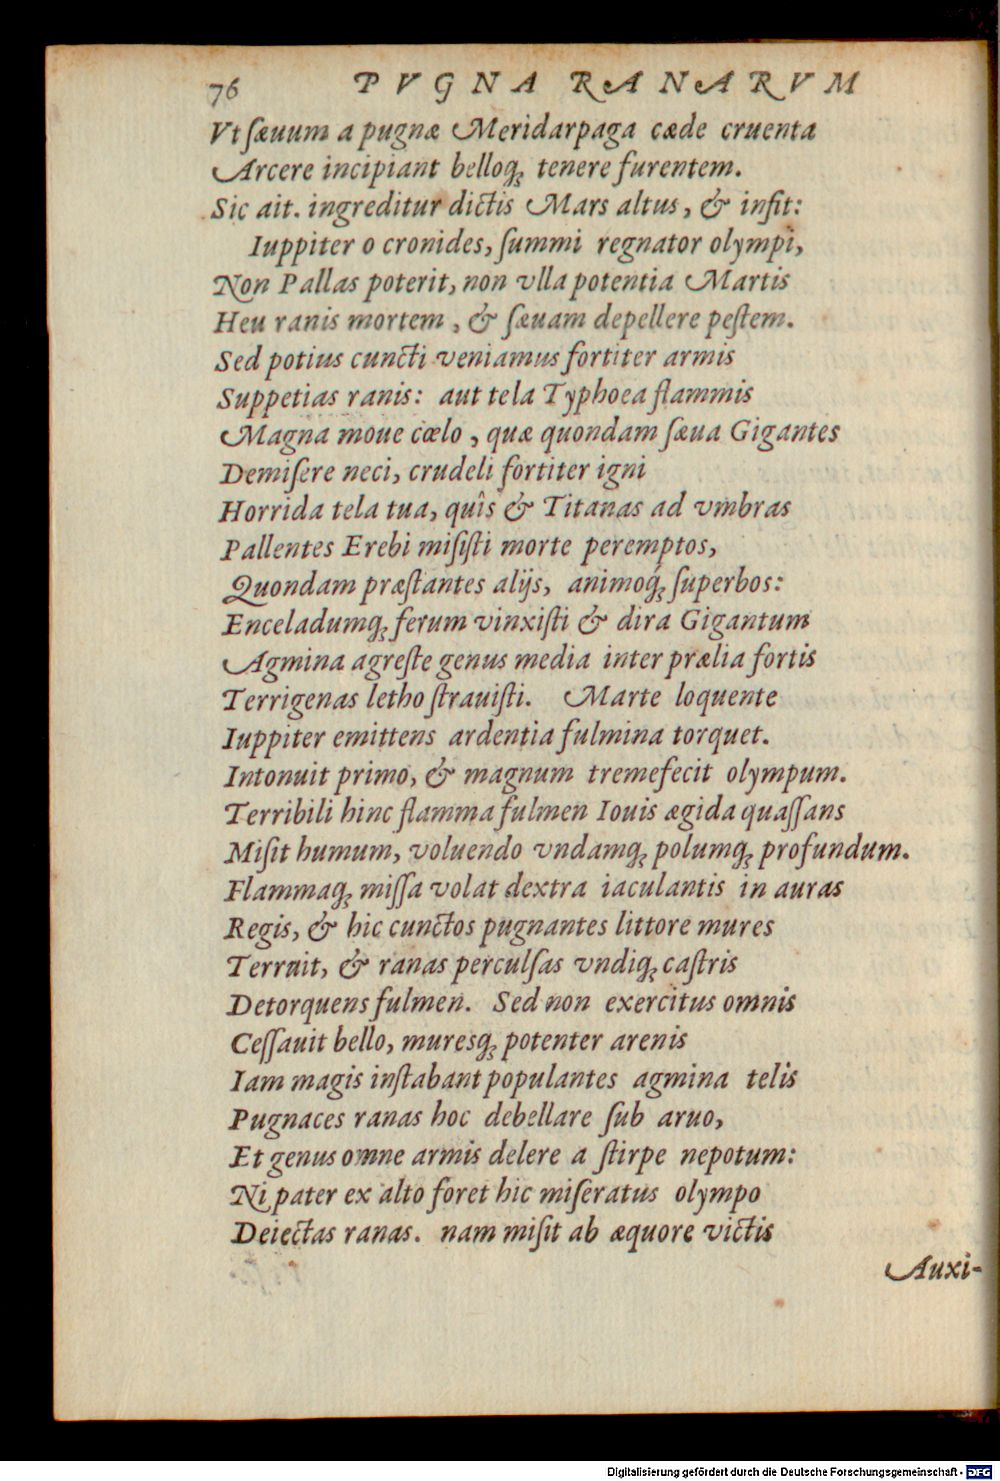 76 PVGNA RANARVM
Vt sæuum a pugnæ Meridarpaga cæde cruenta
Arcere incipiant belloq; tenere furentem.
Sic ait. ingreditur dictis Mars altus, & infit:
Iuppiter o cronides, summi regnator olympi,
Non Pallas poterit, non vlla potentia Martis
Heu ranis mortem, & sæuam depellere pestem.
Sed potius cuncti veniamus fortiter armis
Suppetias ranis: aut tela Typhoea flammis
Magna moue cœlo, quæ quondam sæua Gigantes
Demisere neci, crudeli fortiter igni
Horrida tela tua, quîs & Titanas ad vmbras
Pallentes Erebi misisti morte peremptos,
Quondam præstantes alijs, animoq́; superbos:
Enceladumq; ferum vinxisti & dira Gigantum
Agmina agreste genus media inter prælia fortis
Terrigenas letho strauisti. Marte loquente
Iuppiter emittens ardentia fulmina torquet.
Intonuit primo, & magnum tremefecit olympum.
Terribili hinc flamma fulmen Iouis ægida quassans
Misit humum, voluendo vndamq; polumq; profundum.
Flammaq; missa volat dextra iaculantis in auras
Regis, & hic cunctos pugnantes littore mures
Terruit, & ranas perculsas vndiq; castris
Detorquens fulmen. Sed non exercitus omnis
Cessauit bello, muresq; potenter arenis
Iam magis instabant populantes agmina telis
Pugnaces ranas hoc debellare sub aruo,
Et genus omne armis delere a stirpe nepotum:
Ni pater ex alto foret hic miseratus olympo
Deiectas ranas. nam misit ab æquore victis
Auxi-
Digitalisierung gefördert durch die Deutsche Forschungsgemeinschaft - DFG